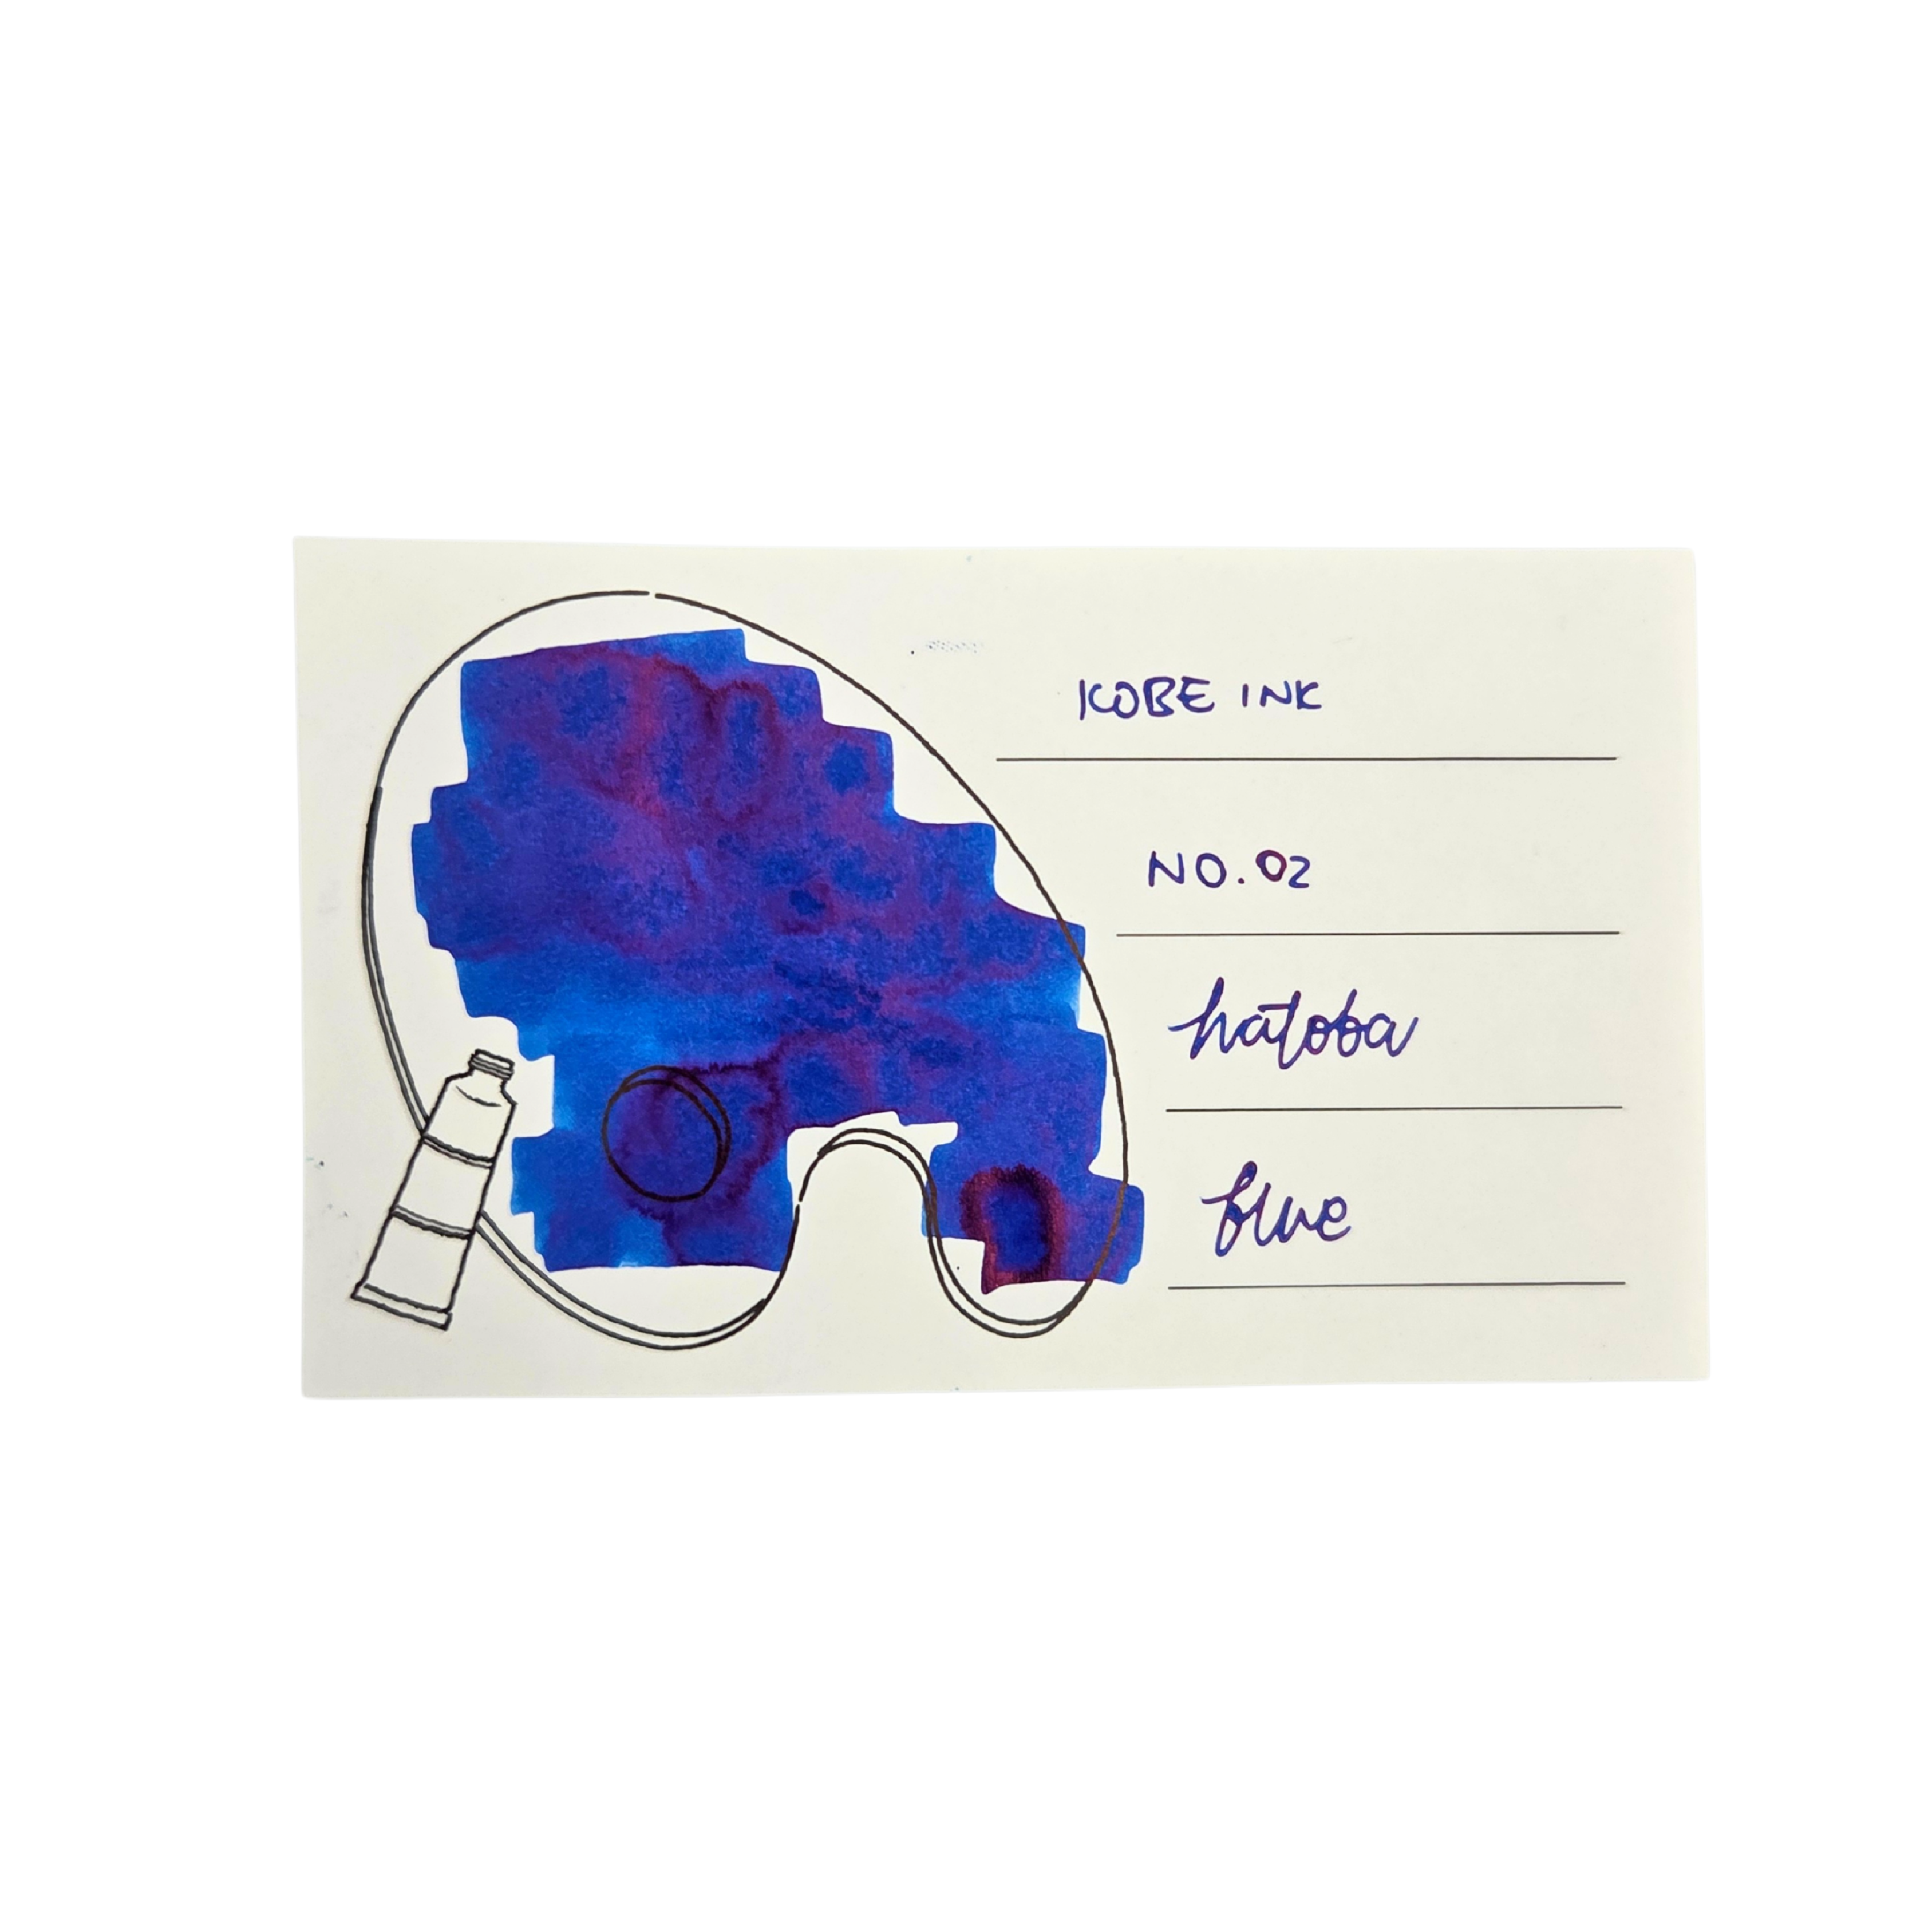 KOBE INK
NO. 02
hatoba
blue